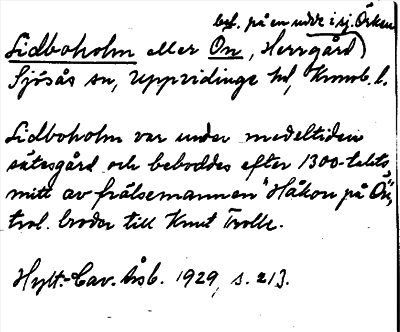 bel. på en udde i sj. Örken
Lidboholm eller Ön, Herrgård
Sjösås sn, Uppvidinge hd, Kronob. l.
Lidboholm var under medeltiden
sätesgård och beboddes efter 1300-talets
mitt av frälsemannen "Håkon på Ön",
trol. broder till Knut Trolle.
Hylt.-Cav. Årsb. 1929, s. 213.